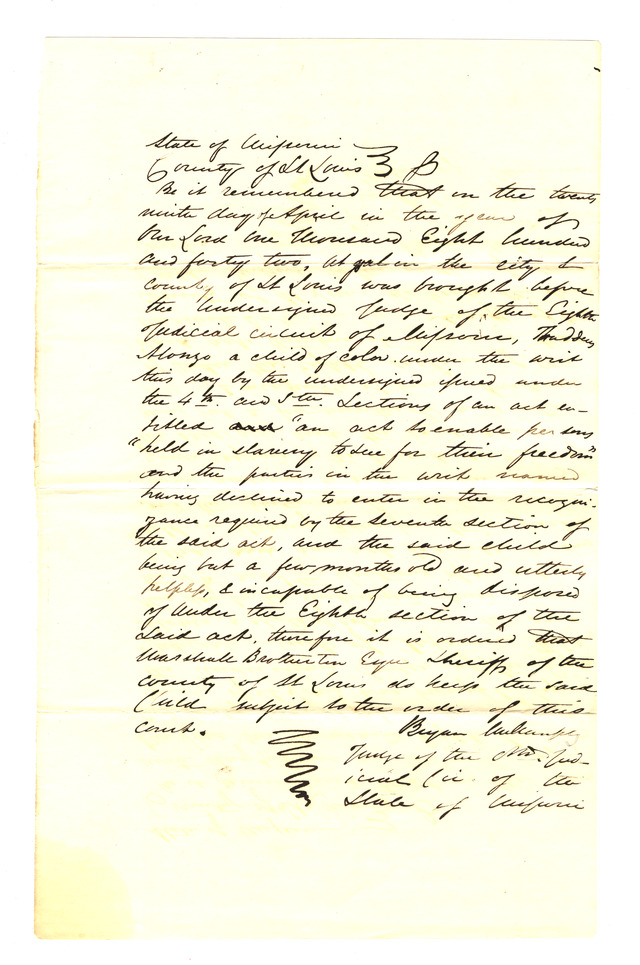 State of Missouri
County of St Louis } ss
Be it remembered that on the twenty
ninth day of April in the year of
Our Lord One Thousand Eight hundred
and forty two, at in the city &
county of St Louis was brought before
the undersigned Judge of the Eighth
Judicial circuit of Missouri, Thaddeus
Alonzo a child of color under the writ
this day by the undersigned issued under
the 4th. and 5th. Sections of an act en-
titled "an act to enable persons
"held in slavery to sue for their freedom"
and the parties in the writ named
having declined to enter in the recogni-
zance required by the seventh section of
the said act, and the said child
being but a few months old and utterly
helpless, & incapable of being disposed
of under the Eighth section of the
said act, therefore it is ordered that
Marshall Brotherton Esqr Sheriff of the
county of St Louis do keep the said
Child subject to the order of this
court.
Bryan Mullanphy
Judge of the 8th. Jud-
icial Cir. of the
State of Missouri